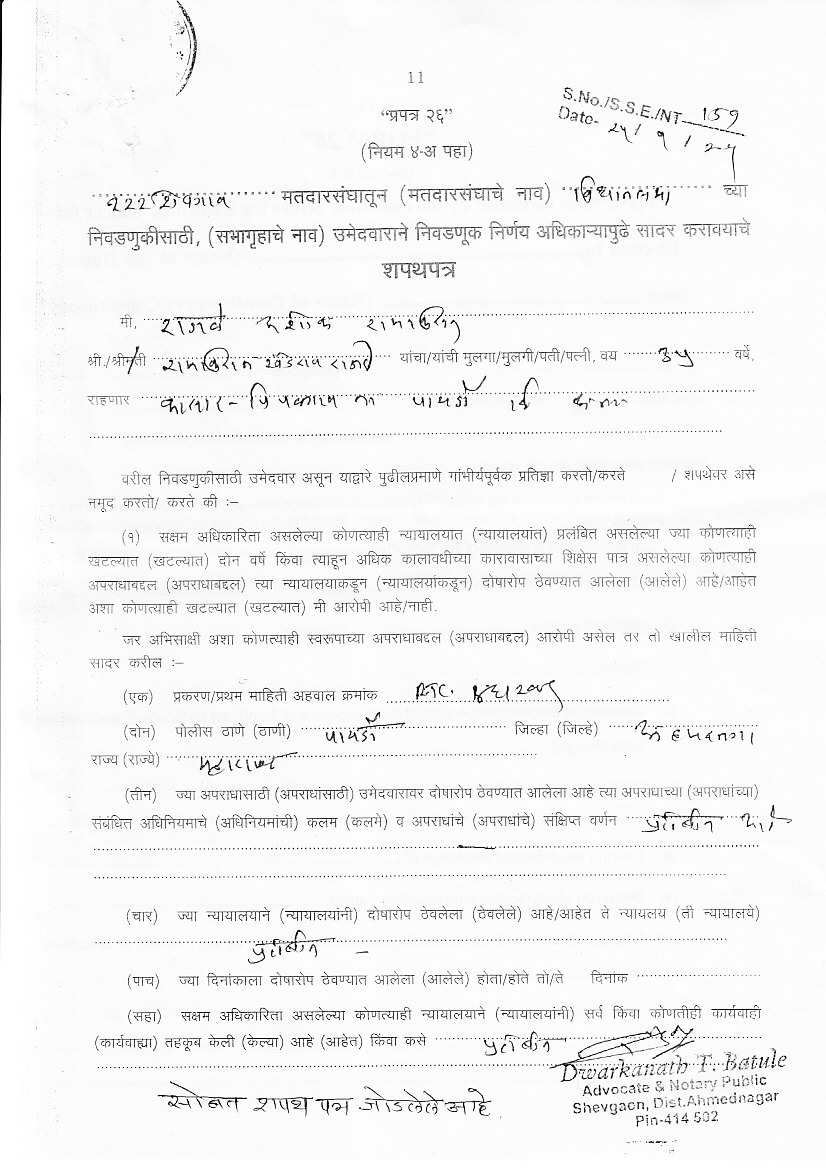 11
"प्रपत्र २६"
S.No./S.S.E./NT 159
Date- २५/९/
(नियम ४-अ पहा)
२२२ शेवगाव मतदारसंघातून (मतदारसंघाचे नाव) विधानसभा च्या
निवडणुकीसाठी, (सभागृहाचे नाव) उमेदवाराने निवडणूक निर्णय अधिकाऱ्यापुढे सादर करावयाचे
शपथपत्र
मी, अशोक रामकिसन
श्री./श्रीमती रामकिसन खंडेराव यांचा/यांची मुलगा/मुलगी/पती/पत्नी, वय ३५ वर्षे,
राहणार कासार - पिंपळगाव ता पाथर्डी
वरील निवडणुकीसाठी उमेदवार असून याद्वारे पुढीलप्रमाणे गांभीर्यपूर्वक प्रतिज्ञा करतो/करते / शपथेवर असे
नमूद करतो/ करते की :–
(१) सक्षम अधिकारिता असलेल्या कोणत्याही न्यायालयात (न्यायालयांत) प्रलंबित असलेल्या ज्या कोणत्याही
खटल्यात (खटल्यात) दोन वर्षे किंवा त्याहून अधिक कालावधीच्या कारावासाच्या शिक्षेस पात्र असलेल्या कोणत्याही
अपराधाबद्दल (अपराधाबद्दल) त्या न्यायालयाकडून (न्यायालयांकडून) दोषारोप ठेवण्यात आलेला (आलेले) आहे/आहेत
अशा कोणत्याही खटल्यात (खटल्यात) मी आरोपी आहे/नाही.
जर अभिसाक्षी अशा कोणत्याही स्वरूपाच्या अपराधाबद्दल (अपराधाबद्दल) आरोपी असेल तर तो खालील माहिती
सादर करील :–
(एक) प्रकरण/प्रथम माहिती अहवाल क्रमांक
(दोन) पोलीस ठाणे (ठाणी) पाथर्डी जिल्हा (जिल्हे) अहमदनगर
राज्य (राज्ये) महाराष्ट्र
(तीन) ज्या अपराधासाठी (अपराधांसाठी) उमेदवारावर दोषारोप ठेवण्यात आलेला आहे त्या अपराधाच्या (अपराधांच्या)
संबंधित अधिनियमाचे (अधिनियमांची) कलम (कलमे) व अपराधांचे (अपराधांचे) संक्षिप्त वर्णन प्रलंबित आहे
(चार) ज्या न्यायालयाने (न्यायालयांनी) दोषारोप ठेवलेला (ठेवलेले) आहे/आहेत ते न्यायलय (ती न्यायालये)
प्रलंबित –
(पाच) ज्या दिनांकाला दोषारोप ठेवण्यात आलेला (आलेले) होता/होते तो/ते दिनांक
(सहा) सक्षम अधिकारिता असलेल्या कोणत्याही न्यायालयाने (न्यायालयांनी) सर्व किंवा कोणतीही कार्यवाही
(कार्यवाह्या) तहकूब केली (केल्या) आहे (आहेत) किंवा कसे प्रलंबित
Dwarkanath T. Batule
Advocate & Notary Public
Shevgaon, Dist.Ahmednagar
Pin-414 502
सोबत शपथ पत्र जोडलेले आहे